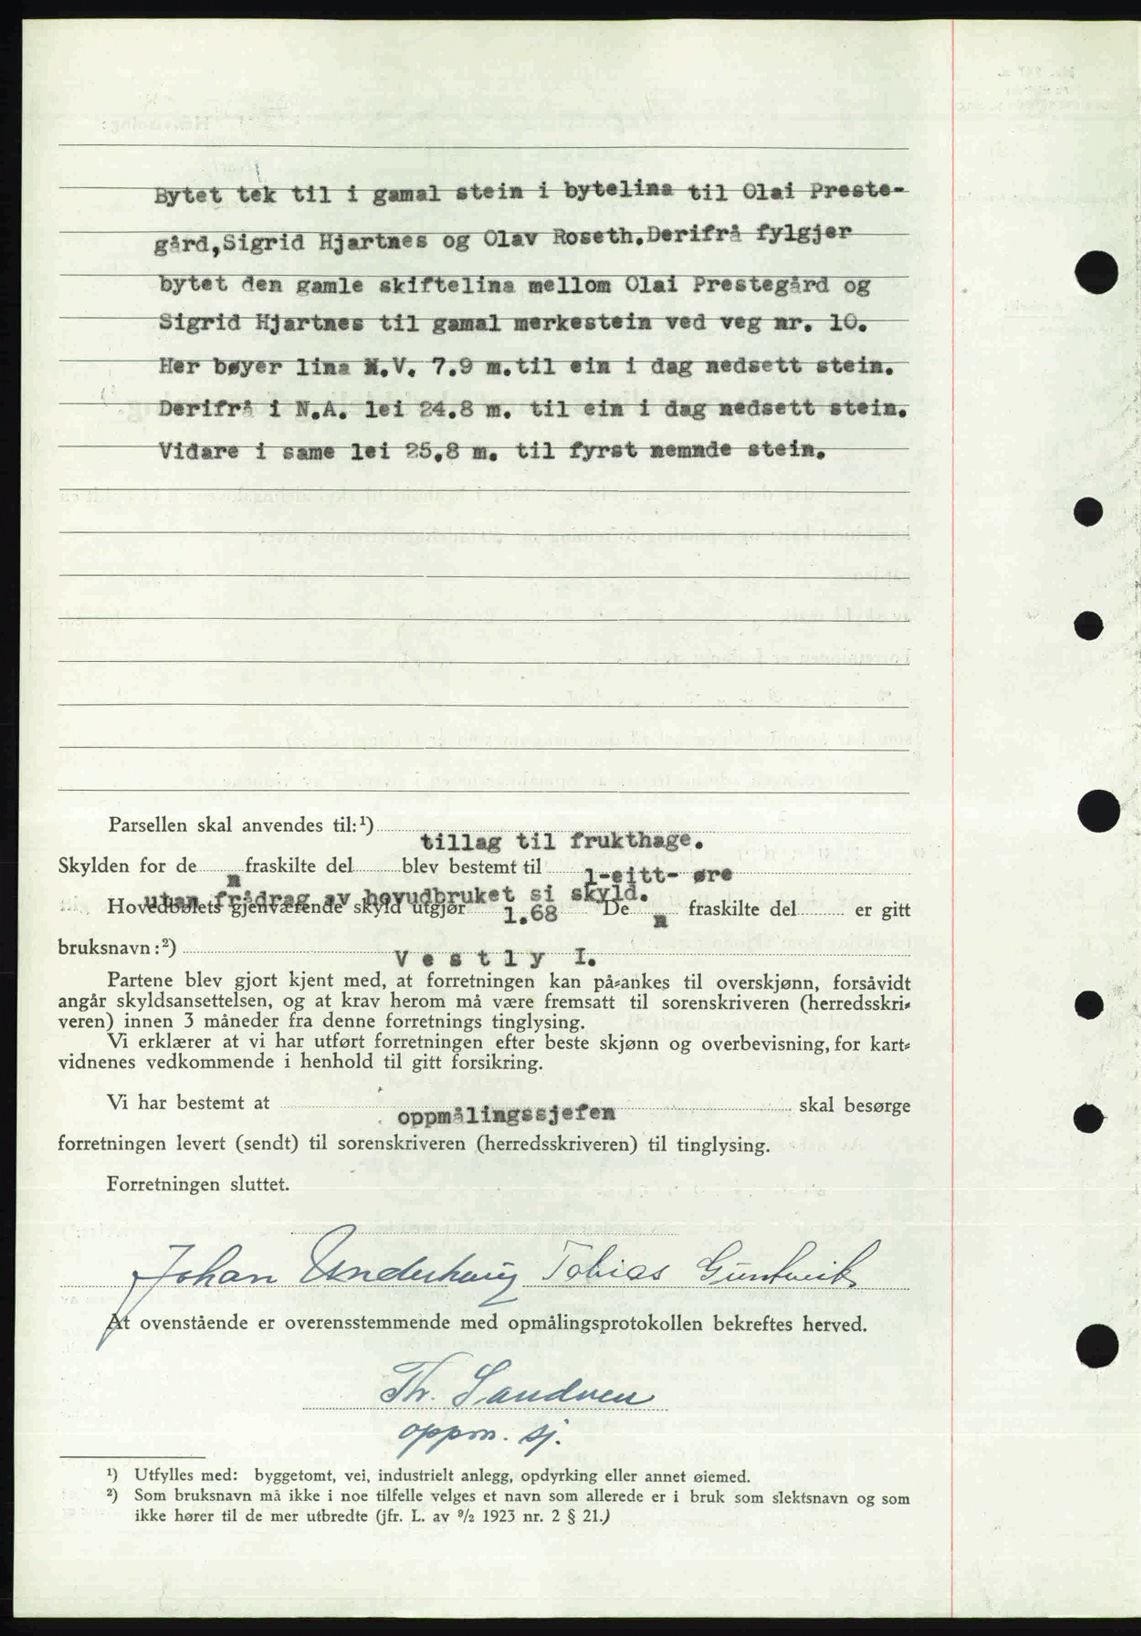 Bytet tek til i gamal stein i bytelina til Olai Preste-
gård,Sigrid Hjartnes og Olav Roseth.Derifrå fylgjer
bytet den gamle skiftelina mellom Olai Prestegård og
Sigrid Hjartnes til gamal merkestein ved veg nr. 10.
Her bøyer lina N.V. 7.9 m.til ein i dag nedsett stein.
Derifrå i N.A. lei 24.8 m. til ein i dag nedsett stein.
Vidare i same lei 25.8 m. til fyrst nemnde stein.
Parsellen skal anvendes til:¹) tillag til frukthage.
Skylden for den fraskilte del blev bestemt til 1-eitt- øre
utan frådrag av hovudbruket si skyld.
Hovedbølets gjenværende skyld utgjør 1.68 Den fraskilte del er gitt
bruksnavn:²) Vestly I.
Partene blev gjort kjent med, at forretningen kan på-ankes til overskjønn, forsåvidt
angår skyldsansettelsen, og at krav herom må være fremsatt til sorenskriveren (herredsskri-
veren) innen 3 måneder fra denne forretnings tinglysing.
Vi erklærer at vi har utført forretningen efter beste skjønn og overbevisning, for kart-
vidnenes vedkommende i henhold til gitt forsikring.
Vi har bestemt at oppmålingssjefen skal besørge
forretningen levert (sendt) til sorenskriveren (herredsskriveren) til tinglysing.
Forretningen sluttet.
Johan Underhaug Tobias Guntveit
At ovenstående er overensstemmende med opmålingsprotokollen bekreftes herved.
Th. Sandven
oppm. sj.
¹) Utfylles med: byggetomt, vei, industrielt anlegg, opdyrking eller annet øiemed.
²) Som bruksnavn må ikke i noe tilfelle velges et navn som allerede er i bruk som slektsnavn og som
ikke hører til de mer utbredte (jfr. L. av ⁹/₂ 1923 nr. 2 § 21.)